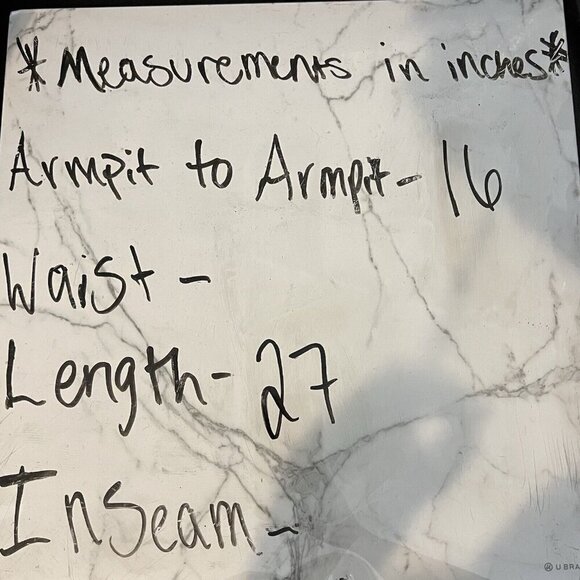 *Measurements in inches*
Armpit to Armpit - 16
Waist -
Length - 27
Inseam -
U BRA